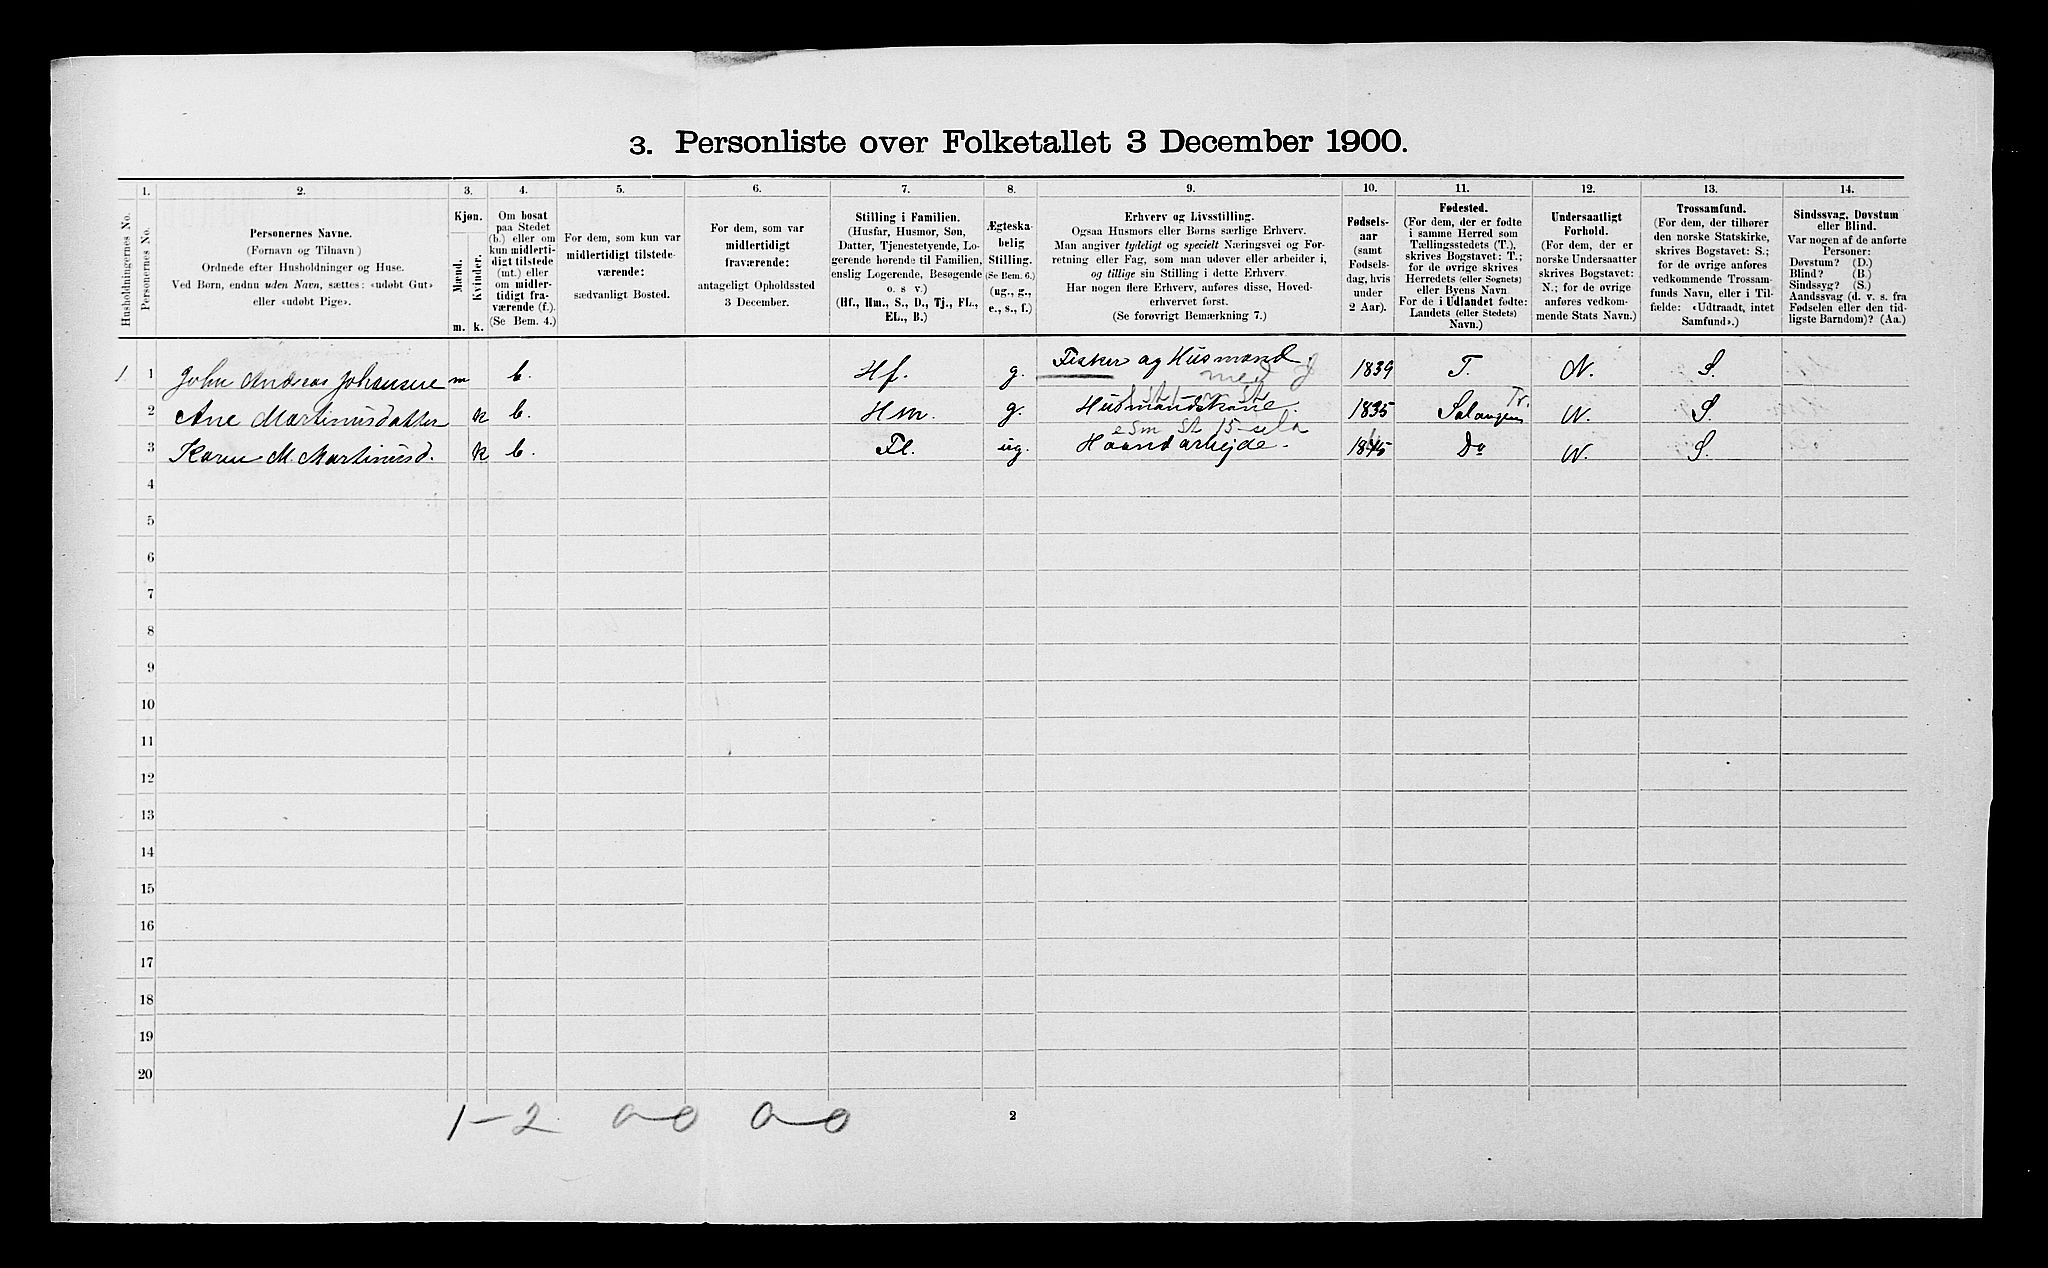 3. Personliste over Folketallet 3 December 1900.
1. 2. 3. 4. 5. 6. 7. 8. 9. 10. 11. 12. 13. 14.
Husholdningernes No.
Personernes No.
Personernes Navne.
(Fornavn og Tilnavn)
Ordnede efter Husholdninger og Huse.
Ved Børn, endnu uden Navn, sættes: «udøbt Gut»
eller «udøbt Pige».
Kjøn.
Mænd.
Kvinder.
m. k.
Om bosat
paa Stedet
(b.) eller om
kun midlerti-
digt tilstede
(mt.) eller
om midler-
tidigt fra-
værende (f.).
(Se Bem. 4.)
For dem, som kun var
midlertidigt tilstede-
værende:
sædvanligt Bosted.
For dem, som var
midlertidigt
fraværende:
antageligt Opholdssted
3 December.
Stilling i Familien.
(Husfar, Husmor, Søn,
Datter, Tjenestetyende, Lo-
gerende hørende til Familien,
enslig Logerende, Besøgende
o. s v.)
(Hf., Hm., S., D., Tj., FL.,
EL., B.)
Ægteska-
belig
Stilling.
(Se Bem. 6.)
(ug., g.,
e., s., f.)
Erhverv og Livsstilling.
Ogsaa Husmors eller Børns særlige Erhverv.
Man angiver tydeligt og specielt Næringsvei og For-
retning eller Fag, som man udøver eller arbeider i,
og tillige sin Stilling i dette Erhverv.
Har nogen flere Erhverv, anføres disse, Hoved-
erhvervet først.
(Se forøvrigt Bemærkning 7.)
Fødsels-
aar
(samt
Fødsels-
dag, hvis
under
2 Aar).
Fødested.
(For dem, der er fødte
i samme Herred som
Tællingsstedets (T.),
skrives Bogstavet: T.;
for de øvrige skrives
Herredets (eller Sognets)
eller Byens Navn
For de i Udlandet fødte:
Landets (eller Stedets)
Navn.)
Undersaatligt
Forhold.
(For dem, der er
norske Undersaatter
skrives Bogstavet:
N.; for de øvrige
anføres vedkom-
mende Stats Navn.)
Trossamfund.
(For dem, der tilhører
den norske Statskirke,
skrives Bogstavet: S.;
for de øvrige anføres
vedkommende Trossam-
funds Navn, eller i Til-
fælde: «Udtraadt, intet
Samfund».)
Sindssvag, Døvstum
eller Blind.
Var nogen af de anførte
Personer:
Døvstum? (D.)
Blind? (B.)
Sindssyg? (S.)
Aandssvag (d. v. s. fra
Fødselen eller den tid-
ligste Barndom)? (Aa.)
1 1 John Andreas Johansen m b. Hf. g. Fisker og Husmand. 1839 T. N. S.
med J
2 Ane Martinusdatter k b. Hm. g. Husmandskone. 1835 Salangen Tr. N. S.
3 Karen M. Martinusd. k b. Fl. ug. Haandarbejde. 1845 Do N. S.
4
5
6
7
8
9
10
11
12
13
14
15
16
17
18
19
20
1-2 0-0 0-0
2